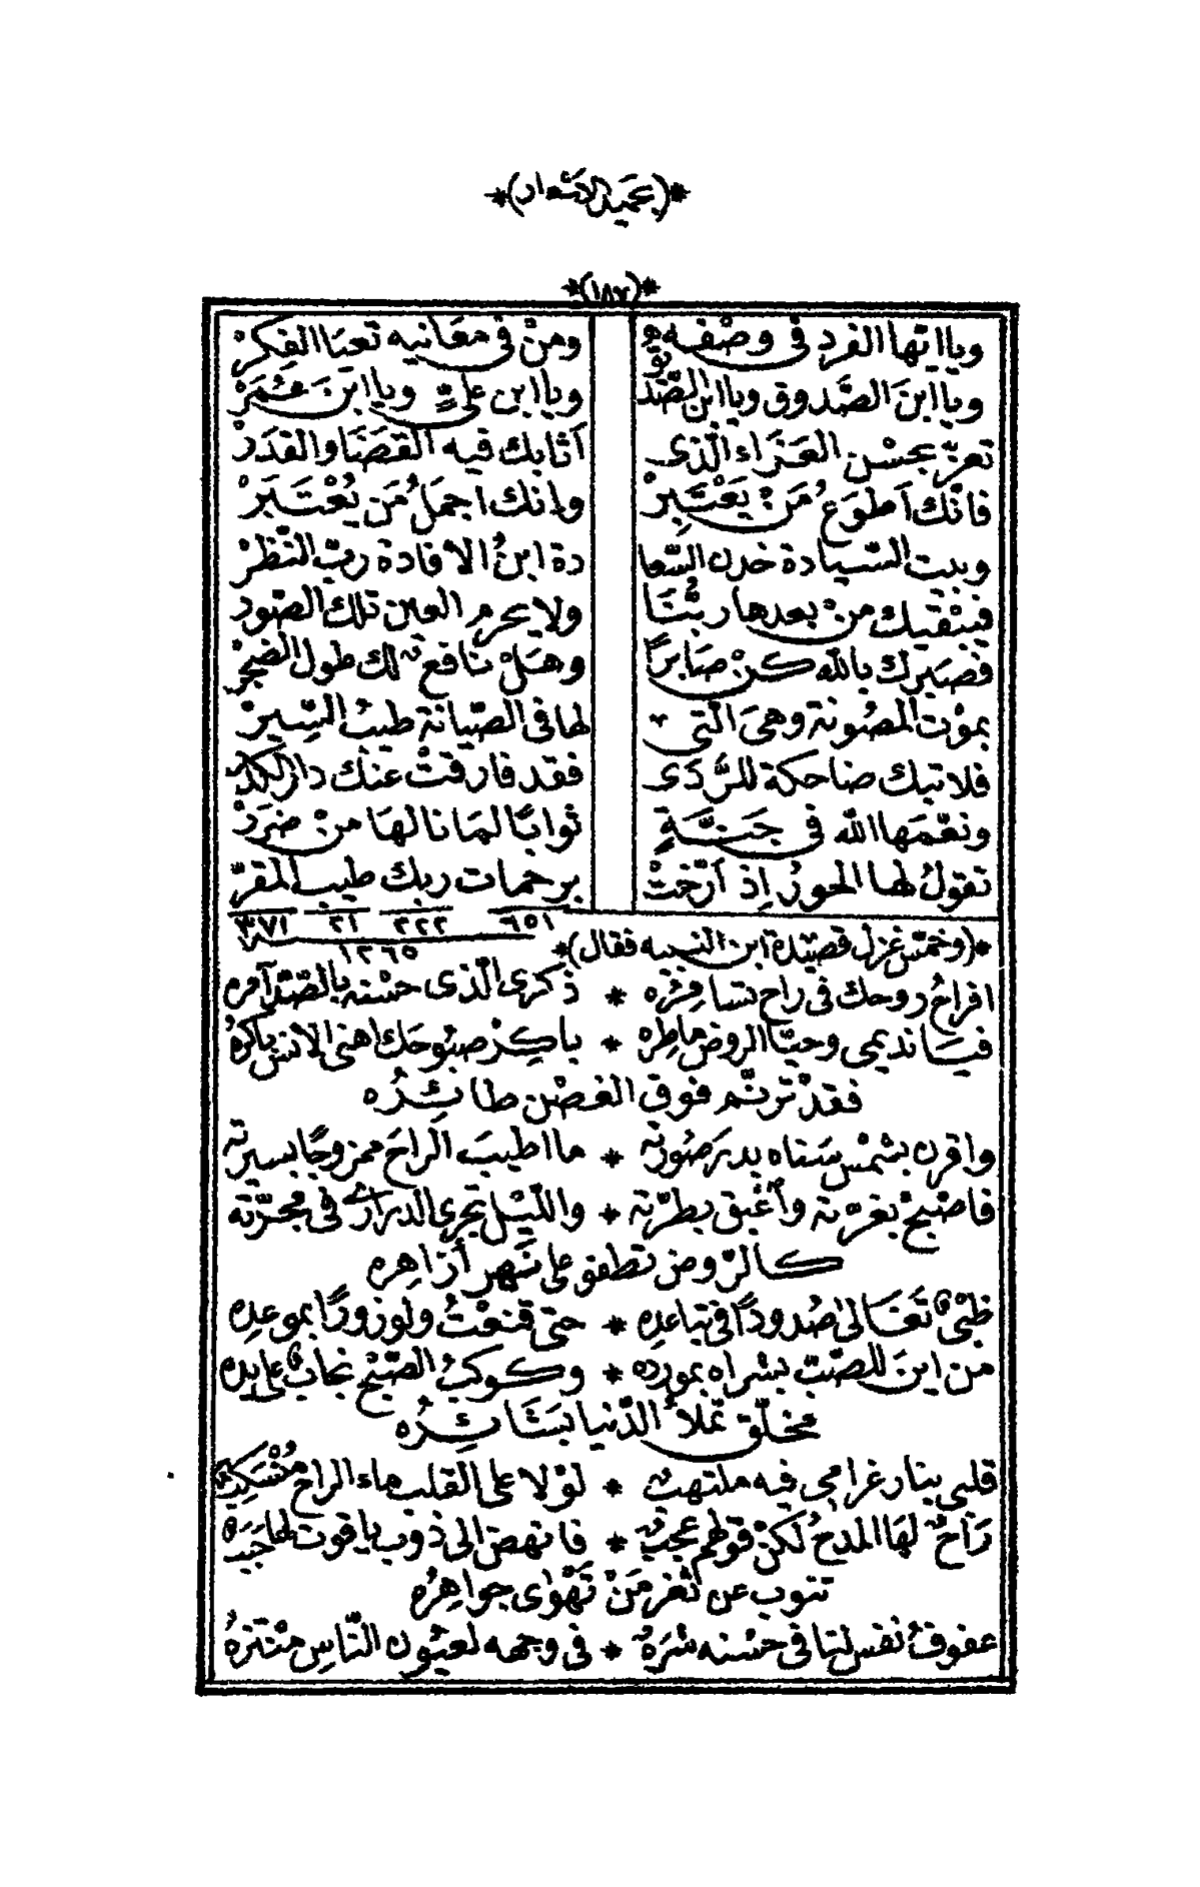 *(بحميد الاشعار)*
*(١٨٧)*
ويا ايّها الفرد في وصْفه ومنْ في معَانيه تعبَا الفِكَرْ
ويا ابنَ الصَّدوق ويا ابن التقى ويا ابن علىٍّ ويا ابنَ عُمَرْ
تعزّ بحسْن العَزَاء الّذى اَثابك فيه القضَا والقدَرْ
فانّك اَطوَعُ مَنْ يَعْتَبِرْ وانك اجملُ مَن يُعْتَبَرْ
وبيت السّيادة خدن السّعا دة ابنُ الافادة ربّ النّظرْ
فيبْقيك منْ بعدها ربُّنَا ولا يحرم العين تلك الصّور
فصَيرك بالله كنْ صَابرًا وهَلْ نافع لك طول الضجرْ
بموْت المصُونة وهىَ الّتى لها فى الصّيانة طيبُ السِّيرْ
فلا تبك ضاحكة للرَّدَى فقد فارقتْ عنك دار الكدرْ
ونعّمَها الله فى جَنّةٍ ثوابًا لما نالهَا منْ ضررْ
تقولُ لها الحورُ اِذ اَرّختْ برحمات ربك طيب المقرّ
٦٥١ ٣٢٢ ٢١ ٣٧١
١٣٦٥
*(وخمّس غزل قصيدة ابن النبيه فقال)*
افراحُ روحك فى راح تسافِرُه * ذكرى الّذى حسْنه بالصّدّ آمره
فيَا نديمى وحيّا الروض ماطِره * باكِرْ صبُوحَك اهنى الانس باكرُهُ
فقدْ ترنّم فوق الغصْن طائِرُه
واقرن بشمْس سَناه بدرَ صُورته * ما اطيبَ الراحَ ممزوجًا بسيرته
فاصْبحْ بغرّته وأغبق بطرّته * واللّيْل تجرى الدرارى فى مجرّته
كالرّوض تطفو على نَهر أزاهِره
ظبْىٌ تَغَالىٰ صُدودًا فى تباعدِه * حتى قنعْتُ ولو زورًا بموعدِه
من اينَ للصّبّ بشراه بمورده * وكوكبُ الصّبْح نجابٌ على يده
مخلّق تملأ الدّنيا بَشَائِرُه
قلبى بنار غرامى فيه ملتهبٌ * لوْلا على القلب ماء الراح مُنْسَكِبٌ
رَاحٌ لهَا المدحُ لكنْ قولهم عجبٌ * فانهض الى ذوب ياقوت لها حَبَبٌ
تنوب عن ثغر مَنْ تَهْوٰى جواهِرُه
عفوفُ نفس لنا فى حسْنه شَرَهُ * فى وجهه لعيُون النّاسِ منْتَزهُ